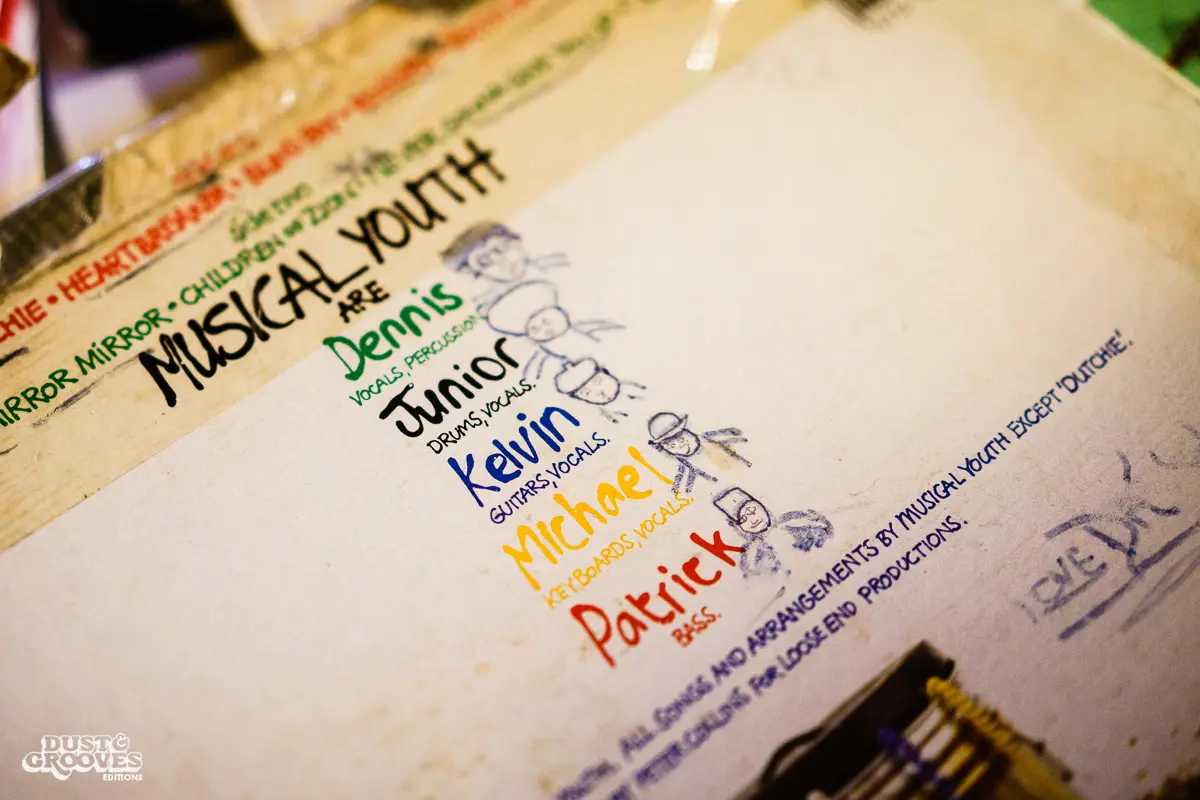 CHIE • HEARTBREAKER •
MIRROR MIRROR • CHILDREN OF ZION •
MUSICAL YOUTH
ARE
Dennis
VOCALS, PERCUSSION
Junior
DRUMS, VOCALS.
Kelvin
GUITARS, VOCALS.
Michael
KEYBOARDS, VOCALS.
Patrick
BASS.
ALL SONGS AND ARRANGEMENTS BY MUSICAL YOUTH EXCEPT 'DUTCHIE'.
PETER COLLINS FOR LOOSE END PRODUCTIONS.
LOVE
DUST & GROOVES
EDITIONS